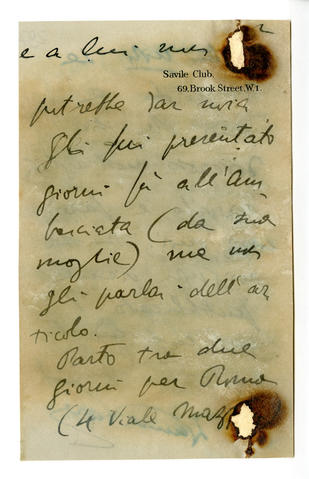 e a lui non
Savile Club.
69, Brook Street, W.1.
potrebbe dar noia
gli fui presentato
giorni fà all'Am
basciata (da sua
moglie) ma non
gli parlai dell'ar
ticolo.
Parto tra due
giorni per Roma
(4 Viale Maz